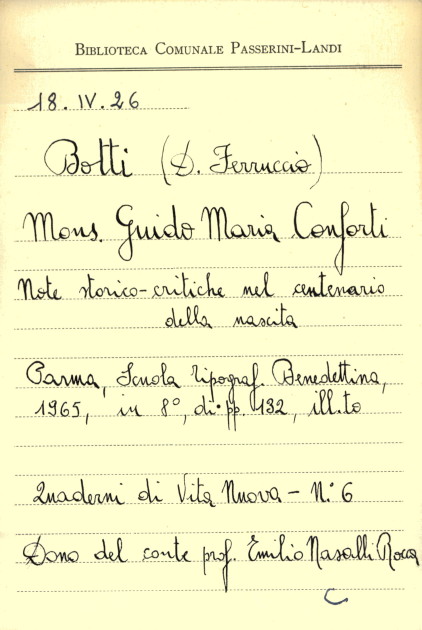 Biblioteca Comunale Passerini-Landi
18. IV. 26
Botti (D. Ferruccio)
Mons. Guido Maria Conforti
Note storico-critiche nel centenario
della nascita
Parma, Scuola tipograf. Benedettina,
1965, in 8°, di pp. 132, ill.to
Quaderni di Vita Nuova - N.° 6
Dono del conte prof. Emilio Nasalli Rocca
C